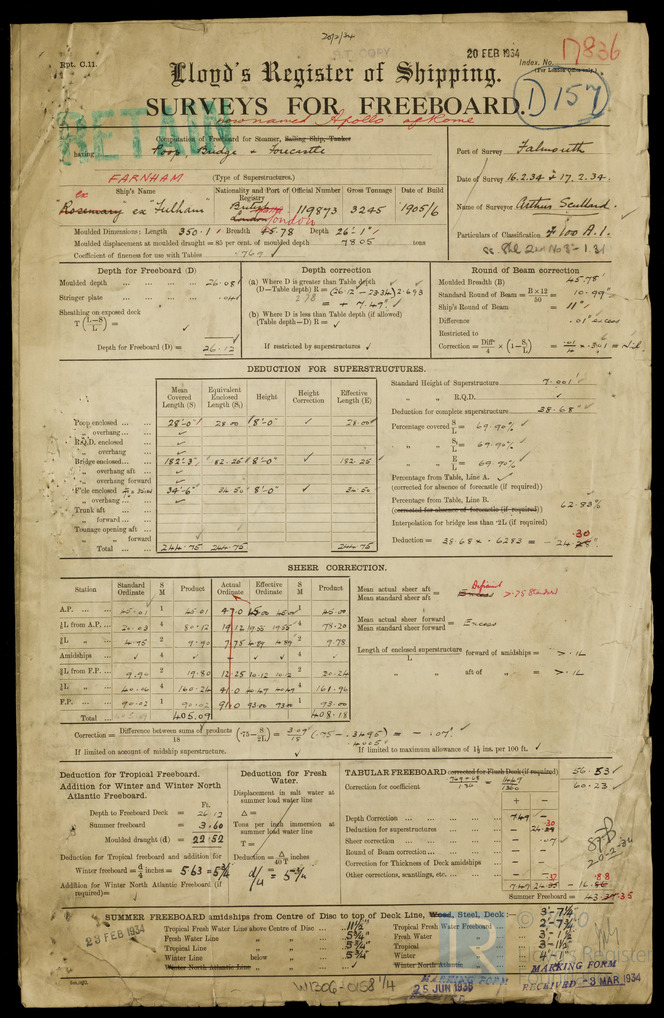 20/2/34
20 FEB 1934
Rpt. C.11.
Index. No.
(For London Office only.)
17836
Lloyd's Register of Shipping.
SURVEYS FOR FREEBOARD.
D157
RETAIN
now named Apollo of Rome
Computation of Freeboard for Steamer, Sailing Ship, Tanker
having Poop Bridge & Forecastle
Port of Survey Falmouth
(Type of Superstructures.)
Date of Survey 16.2.34 & 17.2.34.
FARNHAM
ex
Ship's Name
Nationality and Port of Registry
Official Number
Gross Tonnage
Date of Build
Name of Surveyor Arthur Scullard.
"Rosemary" ex "Fulham"
British
London
London
119873
3245
1905/6
Particulars of Classification 100 A.1.
Moulded Dimensions: Length 350.1 Breadth 45.78 Depth 26.1
Moulded displacement at moulded draught = 85 per cent. of moulded depth 7805 tons
Coefficient of fineness for use with Tables .769
Depth for Freeboard (D)
Moulded depth 26.08
Stringer plate .04
Sheathing on exposed deck
T (L−S/L) =
Depth for Freeboard (D) = 26.12
Depth correction
(a) Where D is greater than Table depth
(D—Table depth) R = (26.12 − 23.34) 2.693
2.78
= + 7.49"
(b) Where D is less than Table depth (if allowed)
(Table depth—D) R =
If restricted by superstructures
Round of Beam correction
Moulded Breadth (B) 45.78'
Standard Round of Beam = B×12/50 = 10.99"
Ship's Round of Beam = 11"
Difference .01" excess
Restricted to
Correction = Diff/4 × (1−S/L) = .01/4 × .301 = Nil.
DEDUCTION FOR SUPERSTRUCTURES.
Mean Covered Length (S)
Equivalent Enclosed Length (S₁)
Height
Height Correction
Effective Length (E)
Poop enclosed 28'-0" 28.00 8'-0" 28.00
„ overhang
R.Q.D. enclosed
„ overhang
Bridge enclosed 182'-3" 182.25 8'-0" 182.25
„ overhang aft
„ overhang forward
F'cle enclosed 34'-6" 34.50 8'-0" 34.50
„ overhang
Trunk aft
„ forward
Tonnage opening aft
„ forward
Total 244.75 244.75 244.75
Standard Height of Superstructure 7.001'
„ „ R.Q.D.
Deduction for complete superstructure 38.68"
Percentage covered S/L = 69.90%
„ „ S₁/L = 69.90%
„ „ E/L = 69.90%
Percentage from Table, Line A.
(corrected for absence of forecastle (if required))
Percentage from Table, Line B. 62.83%
(corrected for absence of forecastle (if required))
Interpolation for bridge less than ·2L (if required)
Deduction = 38.68 × .6283 = − 24.28" .30
SHEER CORRECTION.
Station
Standard Ordinate
S M
Product
Actual Ordinate
Effective Ordinate
S M
Product
A.P. 45.01 1 45.01 47.0 45.00 45.00 1 45.00
⅙L from A.P. 20.03 4 80.12 19.12 19.55 19.55 4 78.20
⅓L „ 4.95 2 9.90 7.75 4.89 4.89 2 9.78
Amidships 4 4
⅓L from F.P. 9.90 2 19.80 12.25 10.12 10.12 2 20.24
⅙L „ 40.06 4 160.24 41.0 40.49 40.49 4 161.96
F.P. 90.02 1 90.02 91.0 93.00 93.00 1 93.00
Total 405.09 408.18
Mean actual sheer aft / Mean standard sheer aft = Excess Deficient >.75 Standard
Mean actual sheer forward / Mean standard sheer forward = Excess
Length of enclosed superstructure / L forward of amidships = >.1L
„ „ aft of „ = >.1L
Correction = Difference between sums of products / 18 (·75 − S/2L) = 3.09/18 (.75 − .3495) = − .07"
.4005
If limited on account of midship superstructure.
If limited to maximum allowance of 1½ ins. per 100 ft.
Deduction for Tropical Freeboard.
Addition for Winter and Winter North Atlantic Freeboard.
Ft.
Depth to Freeboard Deck = 26.12
Summer freeboard = 3.60
Moulded draught (d) = 22.52
Deduction for Tropical freeboard and addition for
Winter freeboard = d/4 inches = 5.63 = 5¾
Addition for Winter North Atlantic Freeboard (if required)=
Deduction for Fresh Water.
Displacement in salt water at summer load water line
Δ =
Tons per inch immersion at summer load water line
T =
Deduction = Δ/40T inches
d/4 = 5¾"
TABULAR FREEBOARD corrected for Flush Deck (if required) 56.53
Correction for coefficient .769+.68/1.36 = 1.449/1.360 60.23
+ −
Depth Correction 7.49 —
Deduction for superstructures — 24.29 .30
Sheer correction — .07
Round of Beam correction — —
Correction for Thickness of Deck amidships — —
Other corrections, scantlings, etc. — —
7.49 24.35 − 16.86 .88
Summer Freeboard = 43.37 .35
20-2-34
SUMMER FREEBOARD amidships from Centre of Disc to top of Deck Line, Wood, Steel, Deck:— 3'-7¼"
Tropical Fresh Water Line above Centre of Disc 11½" Tropical Fresh Water Freeboard 2'-7¾"
Fresh Water Line „ „ 5¾" Fresh Water „ 3'-1½"
Tropical Line „ „ 5¾" Tropical „ 3'-1½"
Winter Line below „ „ 5¾" Winter „
Winter North Atlantic Line „ „ Winter North Atlantic „
23 FEB 1934
MARKING FORM
25 JUN 1936
MARKING FORM
RECEIVED -3 MAR 1934
W1306-0158 1/4